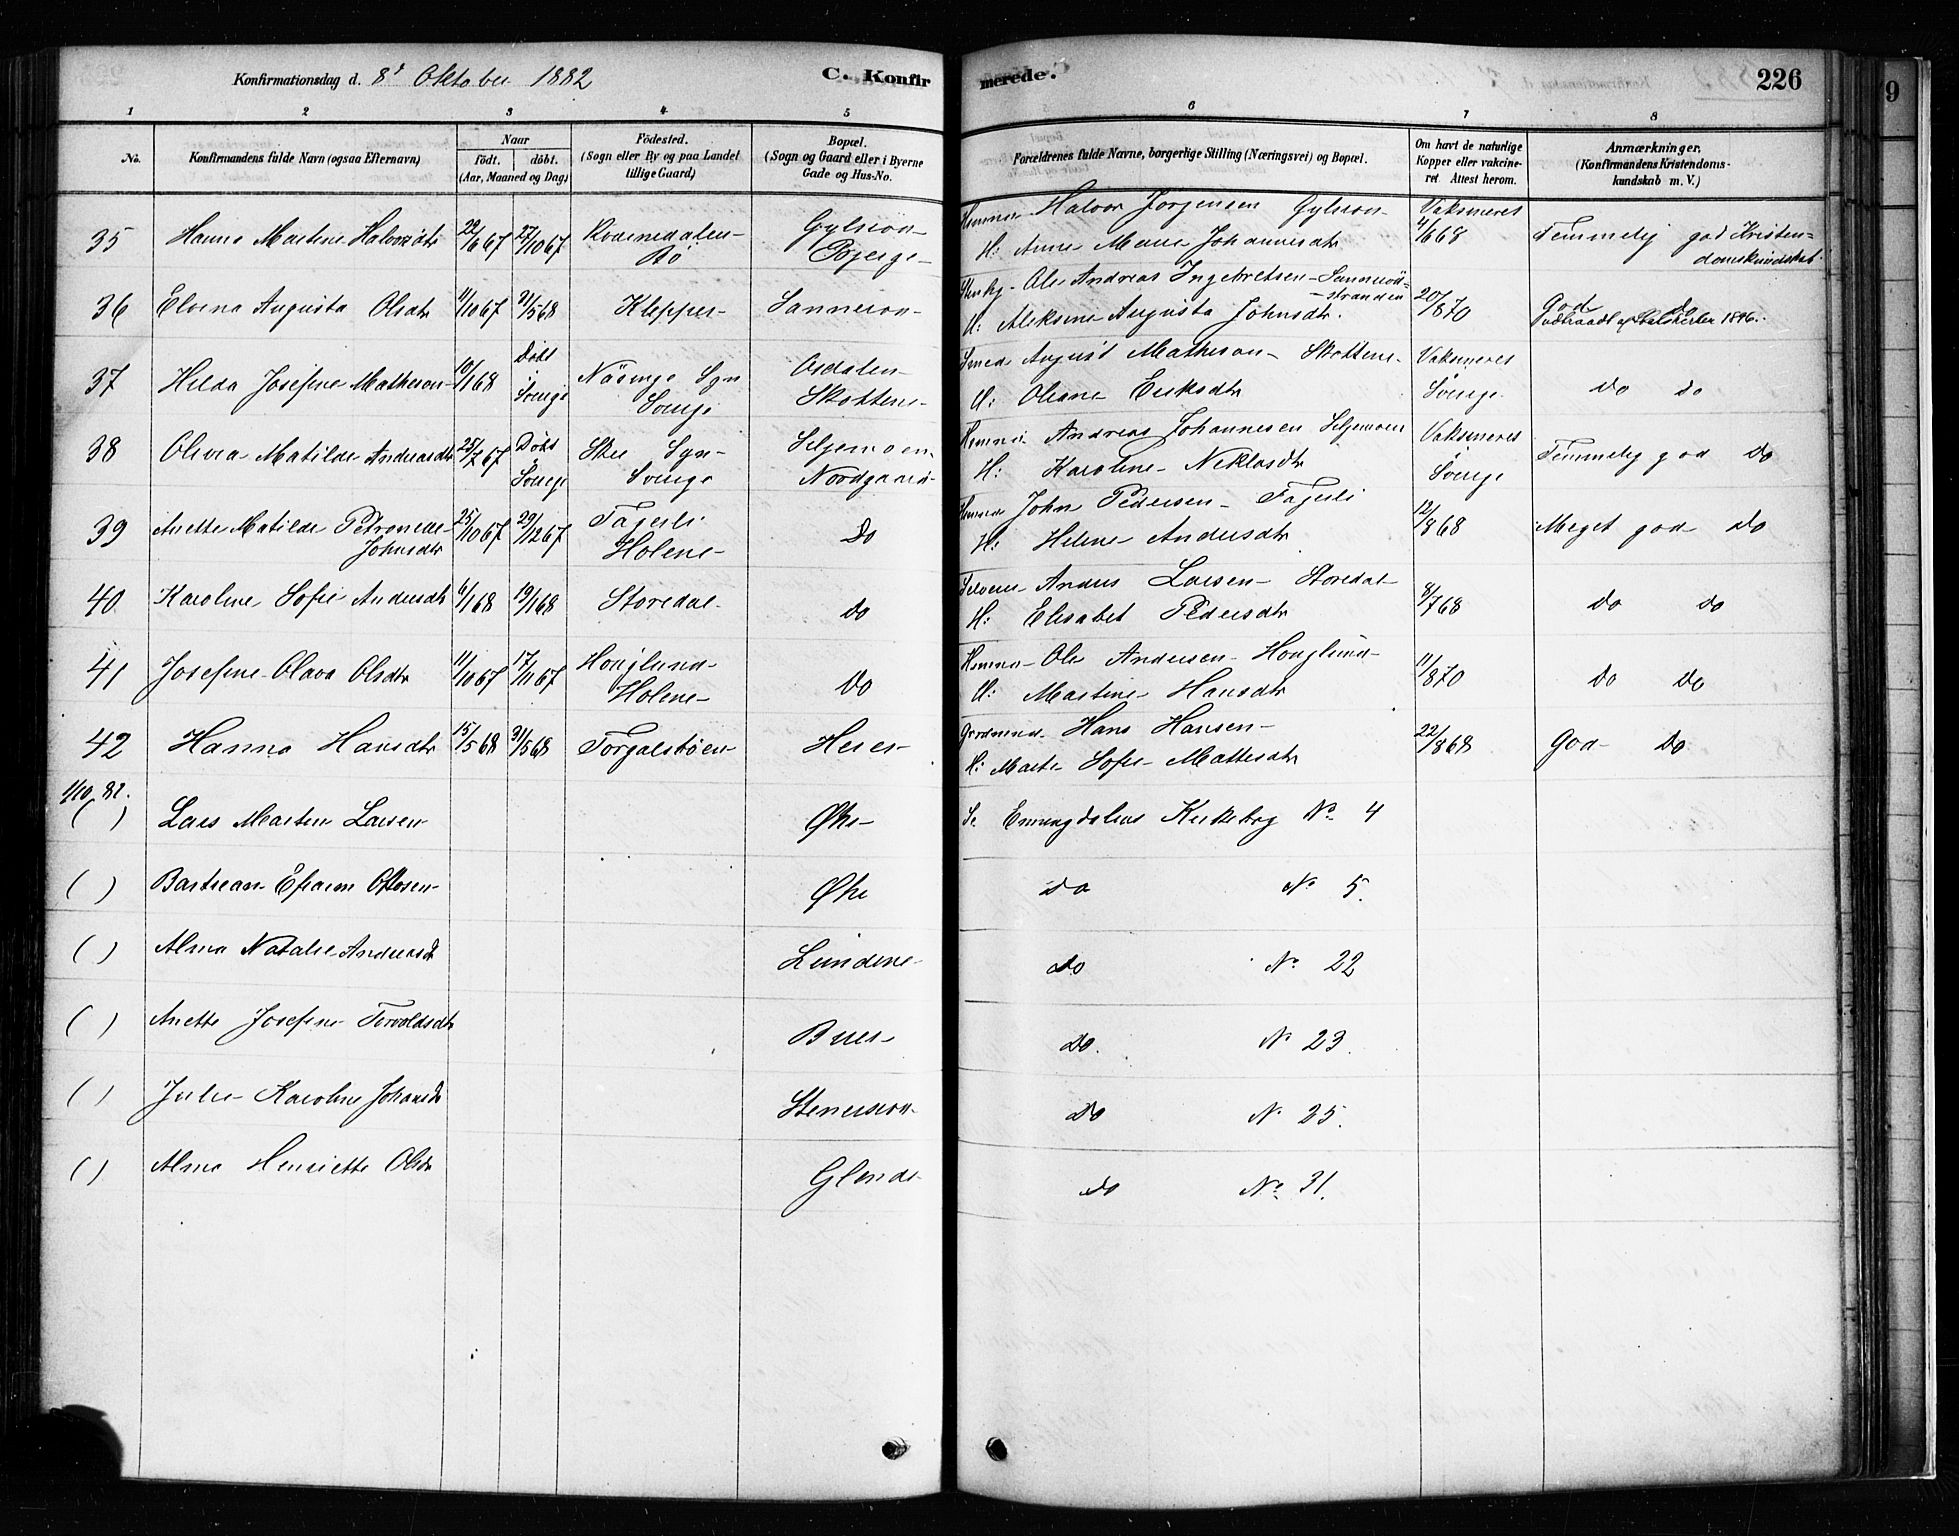 Konfirmationsdag d. 8de Oktober 1882
C. Konfirmerede.
226
9
1 2 3 4 5 6 7 8
No.
Konfirmandens fulde Navn (ogsaa Efternavn)
Naar
födt. döbt.
(Aar, Maaned og Dag)
Födested.
(Sogn eller By og paa Landet
tillige Gaard)
Bopæl.
(Sogn og Gaard eller i Byerne
Gade og Hus-No.
Forældrenes fulde Navne, borgerlige Stilling (Næringsvei) og Bopæl.
Om havt de naturlige
Kopper eller vakcine-
ret. Attest herom.
Anmærkninger.
(Konfirmandens Kristendoms-
kundskab m. V.)
35 Hanna Martine Halvorsdtr 22/6 67 27/10 67
Bö
Bjerge
Halvor Jorgensen
H: Anne Marie Johannesdtr
Vaksineret
4/6 68
Temmelig god Kristen-
domskundskab.
36 Elvina Augusta Olsdtr 11/10 67 31/5 68 Klepper Sanneson
Ole Andreas Ingebretsen
stranden
H: Aleksine Augusta Johnsdtr.
20/8 70
God Do
1896.
37 Hilda Josefine Matheson 10/1 68
Döbt
i
Sverige
Näsinge Sgn
Sverige
Osdalen
Skottene
Smed August Matheson Skottene
H: Oleane Eriksdtr
Vaksineret
i
Sverige
Do Do
38 Olivia Matilde Andreasdtr 25/7 67
Döbt
i
Sverige
Skee Sgn
Sverige
Seljemoen
Nordgaard
Andreas Johannesen Seljemoen
H: Karoline Niklasdtr
Vaksineret
i
Sverige
Temmelig god Do
39 Anette Matilde Petronelle
Johnsdtr
25/10 67 29/12 67
Fagerli
Holene
Do
John Pedersen Fagerli
H: Helene Andersdtr
12/8 68
Meget god Do
40 Karoline Sofie Andersdtr 6/1 68 19/1 68 Storedal Do
Anders Larsen Storedal
H: Elisabet Pedersdtr
8/7 68
Do Do
41 Josefine Olava Olsdtr 11/10 67 17/11 67
Houglund
Holene
Do
Ole Andersen Houglund
H: Martine Hansdtr
11/8 70
Do Do
42 Hanna Hansdtr 15/5 68 31/5 68 Torgalsböen
Gaardmand Hans Hansen
H: Marte Sofie Mattesdtr
22/8 68
God Do
1/10 82.
( ) Lars Martin Larsen Öke Se Enningdalens Kirkebog No 4
( ) Bastian Efraim Ottosen Öke Do No 5.
( ) Alma Natalie Andersdtr Lundene Do No 22
( ) Anette Josefine Torvaldsdtr Buer Do. No 23.
( ) Julie Karoline Johansdtr Do No 25.
( ) Alma Henriette Olsdtr Glende Do No 31.